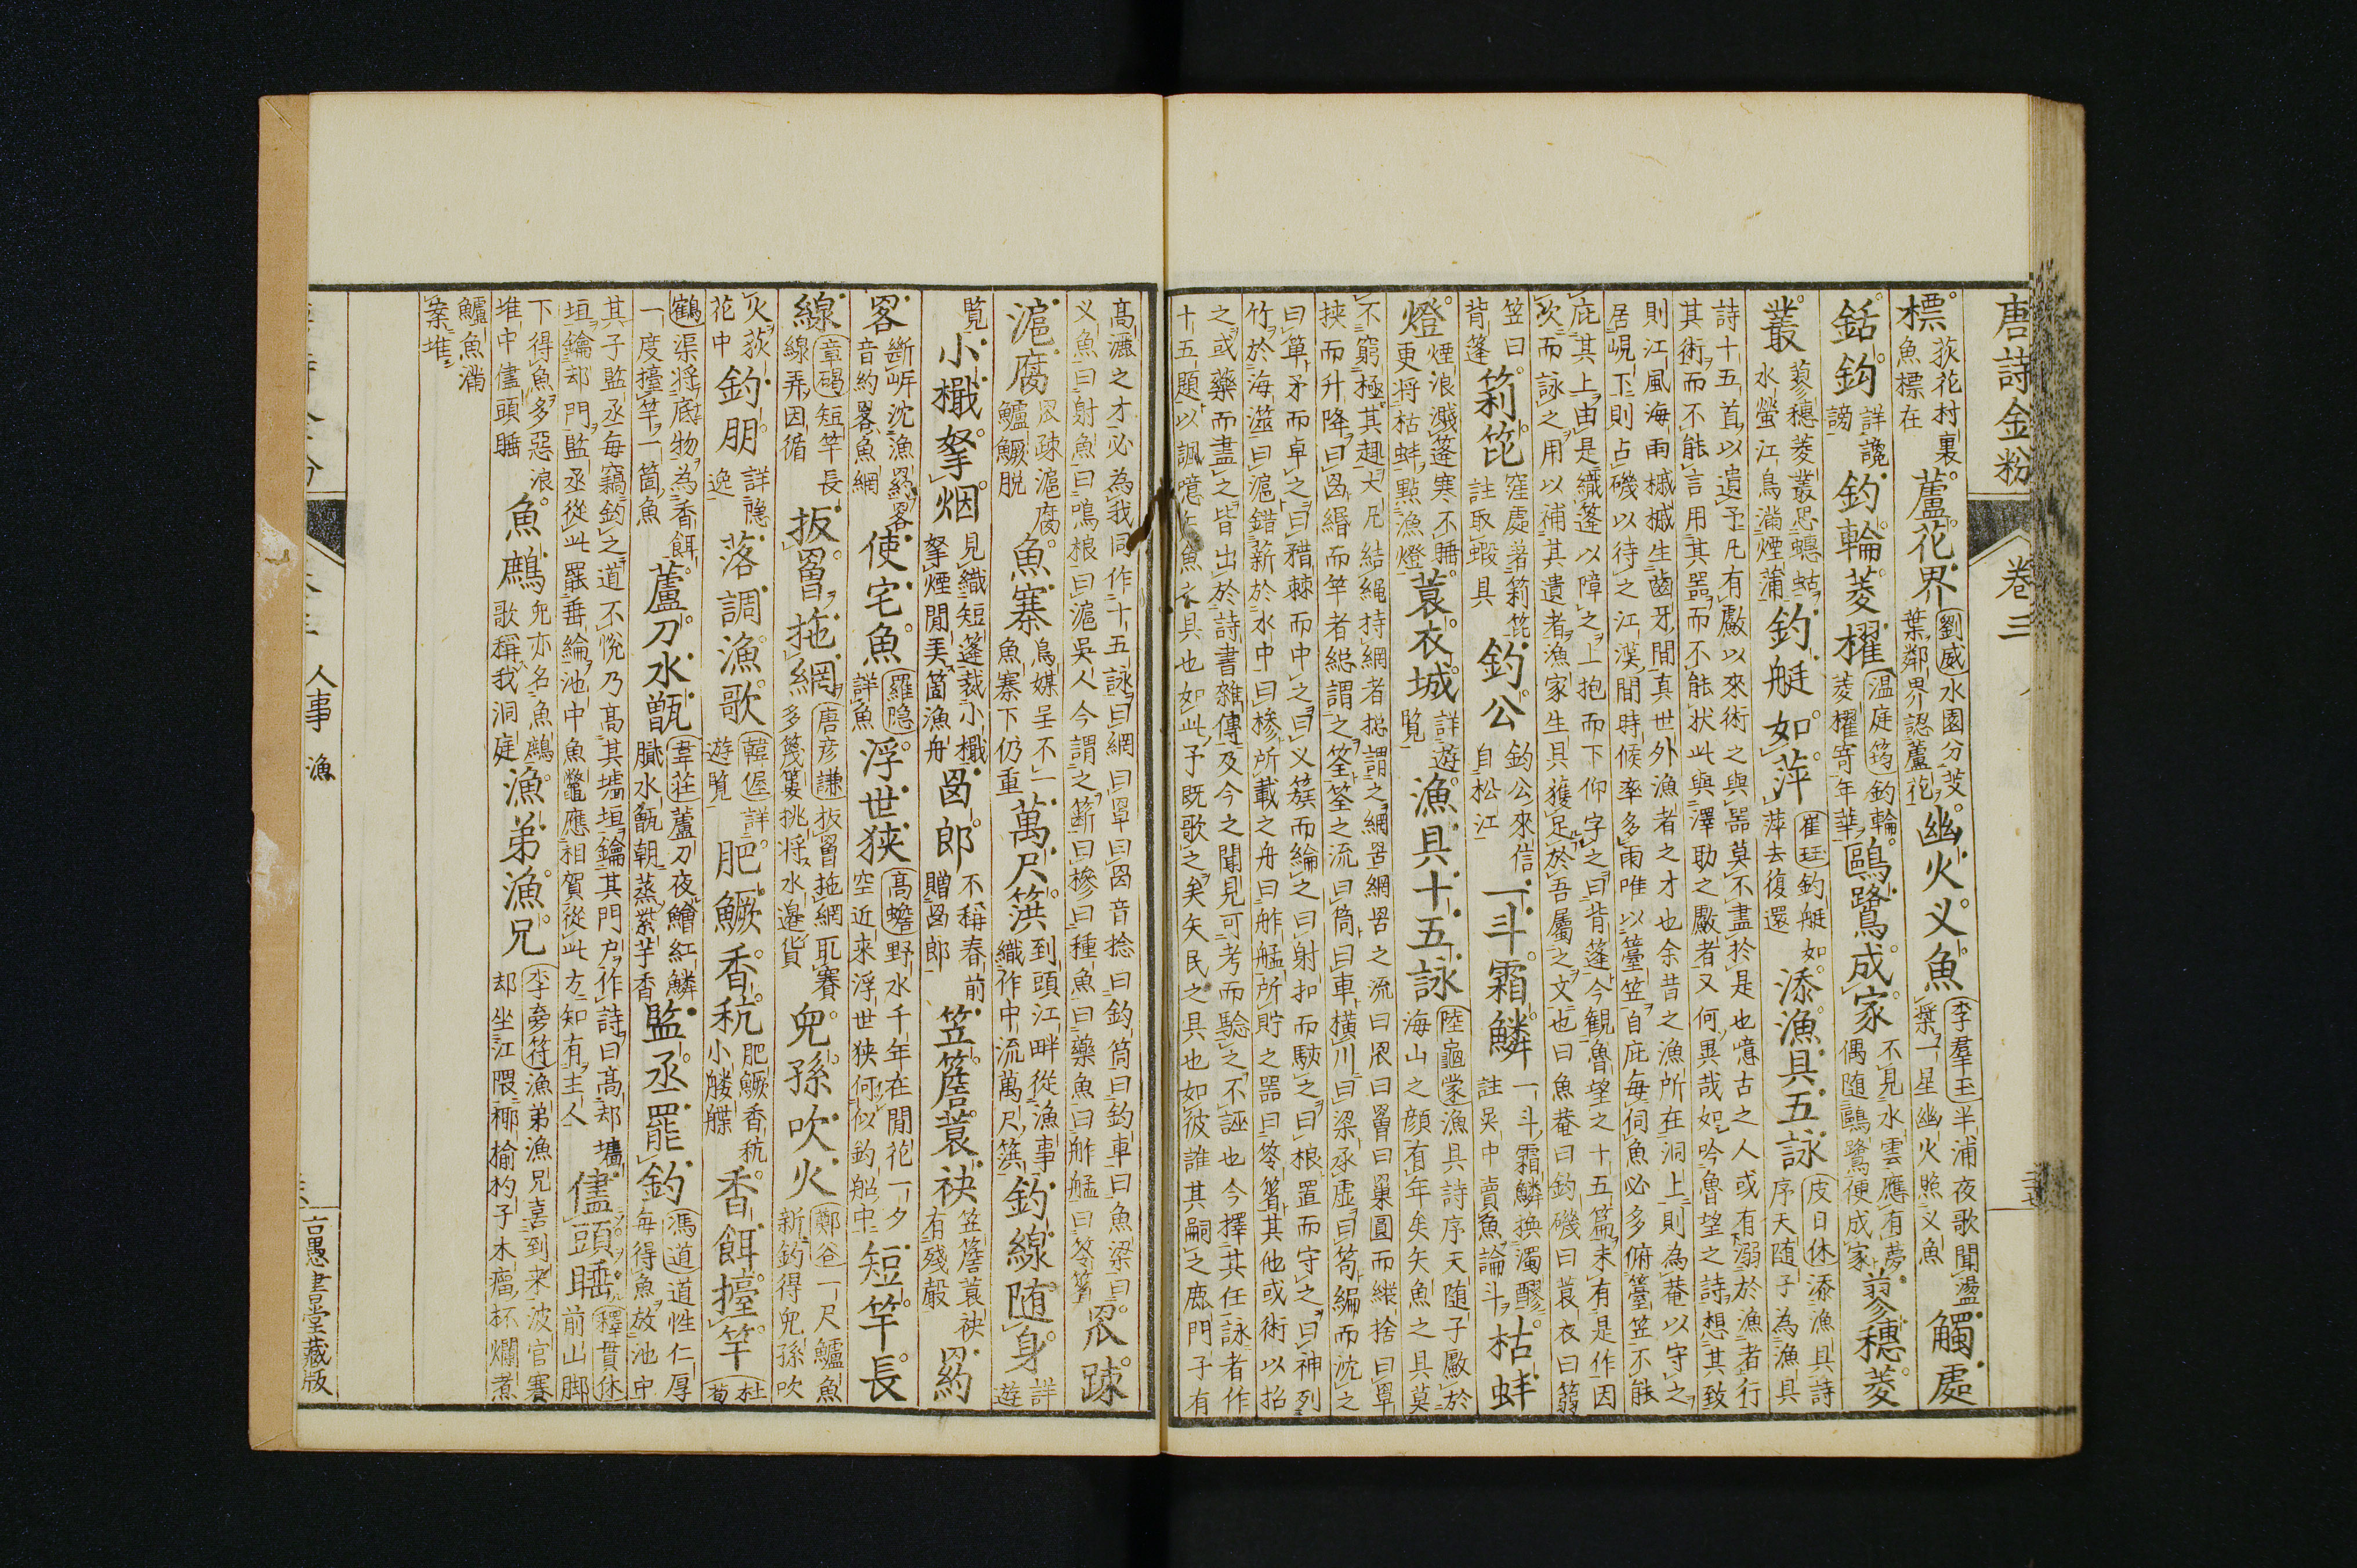 唐詩金粉 卷三
標 荻花村裏魚標在 蘆花界 劉威水園分芰葉鄰界認蘆花 幽火义魚 李羣玉半浦夜歌聞盪槳一星幽火照义魚 觸處
銛鈎 詳讒謗 釣輪菱櫂 温庭筠釣輪菱櫂寄年華 鷗鷺成家 不見水雲應有夢偶随鷗鷺便成家 蓼穗菱
叢 蓼穗菱叢思蟪蛄水螢江鳥滿煙蒲 釣艇如萍 崔珏釣艇如萍去復還 添漁具五詠 皮日休添漁具詩序天随子為漁具
詩十五首以遺予凡有䱷以來術之與噐莫不盡於是也噫古之人或有溺於漁者行
其術而不能言用其噐而不能状此與澤䱷之䱷者又何異哉如吟魯望之詩想其致
則江風海雨槭槭生齒牙間真世外漁者之才也余昔之漁所在洞上則為菴以守之
居峴下則占磯以待之江漢間時候率多雨唯以䈬笠自庇每伺魚必多俯䈬笠不能
庇其上由是織篷以障之上抱而下仰字之曰背篷今観魯望之十五篇未有是作因
次而詠之用以補其遺者漁家生具獲足於吾屬之文也曰魚菴曰釣磯曰蓑衣曰篛
笠曰背篷 箣笓 窪處著箣笓註取蝦具 釣公 釣公來信自松江 一斗霜鱗 一斗霜鱗換濁醪註吴中賣魚論斗 枯蚌
燈 煙浪濺篷寒不睡更将枯蚌點漁燈 蓑衣城 詳遊覧 漁具十五詠 陸龜蒙漁具詩序天随子䱷於海山之顔有年矣矢魚之具莫
不窮極其趣大凡結繩持網者揔謂之網罟網罟之流曰罛曰罾曰䍖圓而縱捨曰罩
挟而升降曰㘝緡而竿者総謂之筌筌之流曰筒曰車横川曰梁承虚曰笱編而沈之
曰箄矛而卓之曰矠棘而中之曰义簇而綸之曰射扣而駭之曰桹置而守之曰神列
竹於海澨曰滬錯薪於水中曰槮所載之舟曰舴艋所貯之噐曰笭箵其他或術以招
之或藥而盡之皆出於詩書雜傳及今之聞見可考而騐之不誣也今擇其任詠者作
十五題以諷噫矢魚之具也如此予既歌之矣矢民之具也如彼誰其嗣之鹿門子有
髙灑之才必為我同作十五詠曰網曰罩曰㘝音捻曰釣筒曰釣車曰魚梁曰
义魚曰射魚曰鳴桹曰滬吴人今謂之䉍曰槮曰種魚曰藥魚曰舴艋曰笭箵 罛疎
滬腐 罛疎滬腐鱸鱖脱 魚寨 鳥媒呈不一魚寨下仍重 萬尺篊 到頭江畔從漁事織作中流萬尺篊 釣線随身 詳遊
覧 小檝拏烟 見織短篷裁小檝拏煙閒美箇漁舟 㘝郎 不稱春前贈㘝郎 笠簷蓑袂 笠簷蓑袂有殘殽 罶
䍡 斷岍沈漁罶䍡音約畧魚網 使宅魚 羅隐詳魚 浮世狭 髙蟾野水千年在閒花一夕空近来浮世狭何似釣船中 短竿長
線 章碣短竿長線弄因循 扳罾拖網 唐彦謙扳罾拖網取賽多篾簍挑将水邉貨 兒孫吹火 鄭谷一尺鱸魚新釣得兒孫吹
火荻花中 釣朋 詳隐逸 落調漁歌 韓偓詳遊覧 肥鱖香秔 肥鱖香秔小艛艓 香餌擡竿 杜荀
鶴渠将底物為香餌一度擡竿一箇魚 蘆刀水甑 韋荘蘆刀夜鱠紅鱗膩水甑朝蒸紫芋香 監丞罷釣 馮道道性仁厚每得魚放池中
其子監丞每竊釣之道不悦乃髙其墻垣鑰其門户作詩曰髙却墻
垣鑰却門監丞從此罷垂綸池中魚鼈應相賀從此方知有主人 儘頭睡 釋貫休前山脚
下得魚多惡浪堆中儘頭睡 魚鷉 兒亦名魚鷉歌稱我洞庭 漁弟漁兄 李夢符漁弟漁兄喜到来波官賽却坐江隈椰揄杓子木瘤杯爛煮
鱸魚滿案堆
人事 漁
言愚書堂藏版